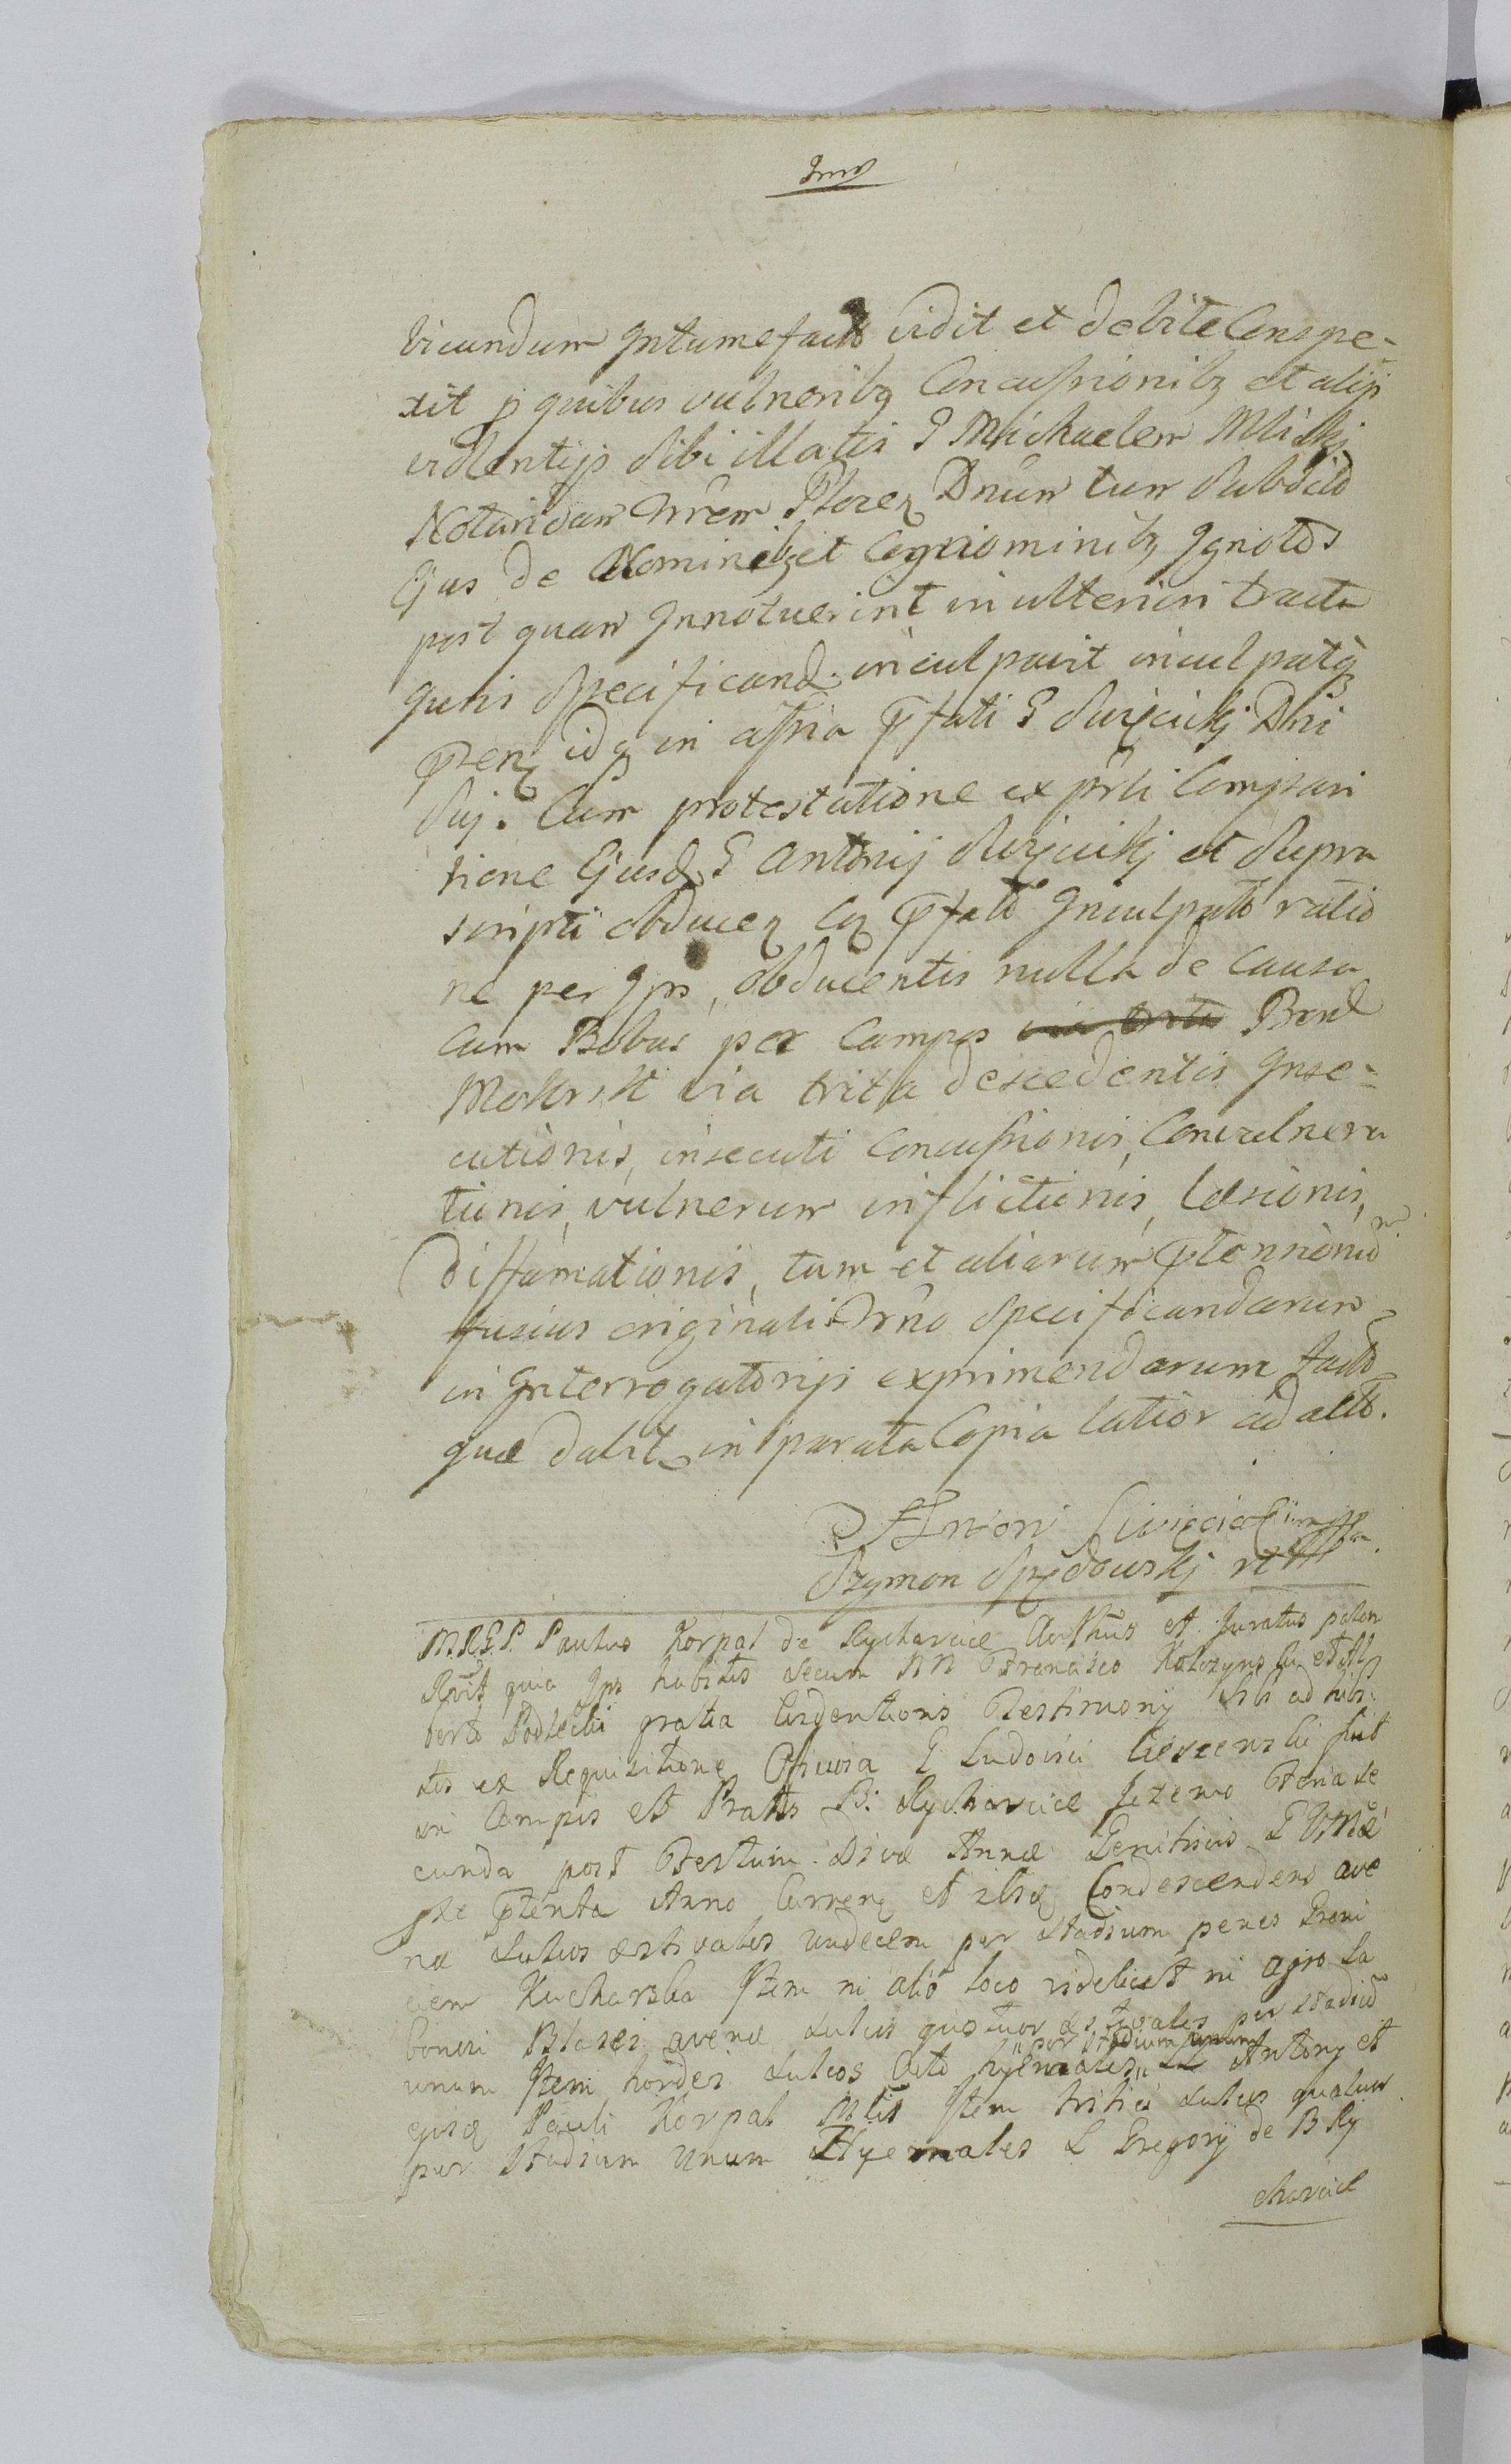 vicundum Intumefacto vidit et debite Conspe-
xit p quibus vulneribq Concussionibq et alijs
violentijs sibi illatis G Michaelem Mlickj
Notaridam Ptorez Dnum tum Subdito
Ejus de Nominibq et Cognominibq Ignotos
post quam Innotuerint in ulteriori tractu
Juris Specificand. inculpavit inculpatq
pren idq in assria pfati G Swięcickj Dni
Sui. Cum protestatione ex prti Compari
tione Ejusd G Antonij Swięcickj et Supra
scripti obducen Coq pfato Inculpato ratio
ne per Ips, obducentis nulla de Causa
Cum Bobus per Campos via trita Bond
Mokrsk via trita descedentis Inse-
cutionis, insecuti Concussionis, Convulnera
tionis, vulnerum inflictionis, læsionis,
diffamationis, tum et aliarum ptensionum
fusius originali Specificandarum
in Interrogatorijs exprimendarum facto
quæ dabit in parata Copia latior ad acto.
Antoni Swięcicki
Szymon Spędowskj
M.R.G.P. Paulus Korpal de Rycharcice et Juratus palam
quia Ips habitis secum NN Francisco et Al
berto Podlecki gratia Evidentioris Testimonij sibi adhibi
tis ex Requisitione Officiosa G Ludovici Cieszenski fuit
in Campis et Pratis B. Rycharcice Jezewo Feria se
cunda post Festum Divæ Annæ Genitricis
ptenta Anno Curren et ibiq Condescendens ave
næ sulcos æstivales undecem per stadium penes Grani
ciem Kucharska Item in alio loco videlicet in agro La
boniri Blasei avenæ sulcos quatuor æstivales per stadiu
unum Item hordei sulcos Octo hyemales " per stadium unum " Antony et
ejusq Pauli Korpal Item tritici sulcos quatuor
per Stadium Unum Hyemales L Gregorij de B Ry
charcice